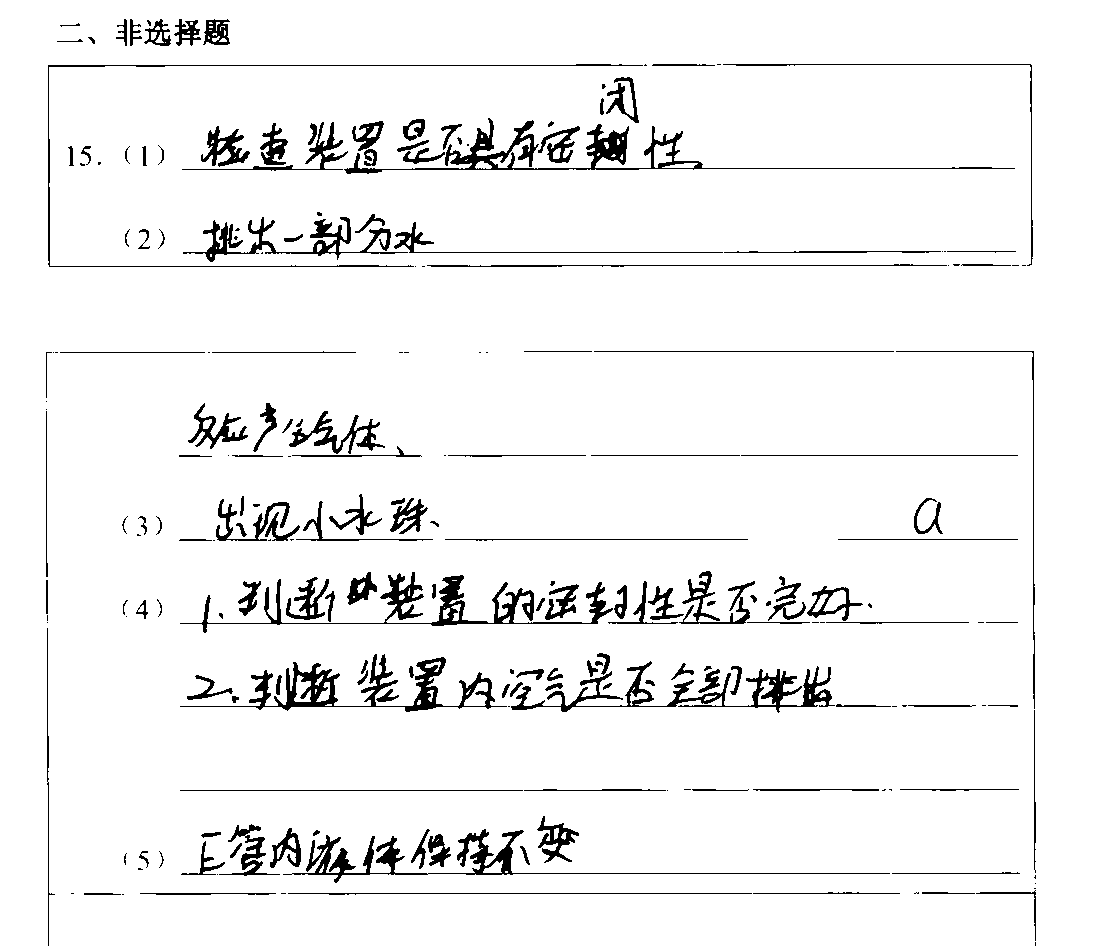 二、非选择题
闭
15.（1） 检查装置是否具有密 性
（2） 排出一部分水
反应产生气体、
（3） 出现小水珠、 a
（4） 1.判断装置的密封性是否完好.
2.判断装置内空气是否全部排出.
（5） E管内液体保持不变